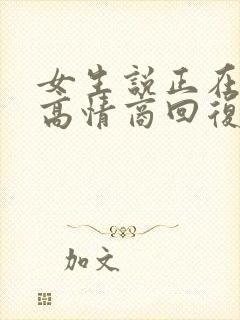 女生說正在
高情商回復
加文